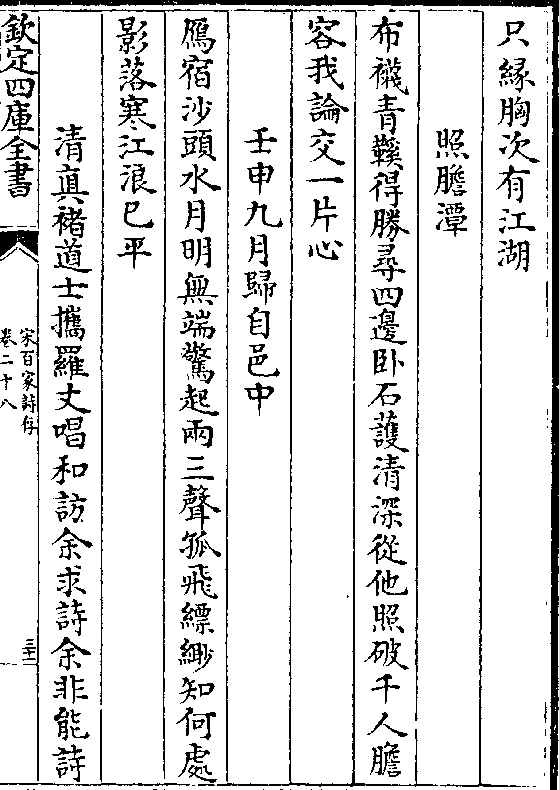 只緣胸次有江湖
照膽潭
布襪青鞵得勝尋四邊卧石護清深從他照破千人膽
容我論交一片心
壬申九月歸自邑中
鴈宿沙頭水月明無端驚起兩三聲孤飛縹緲知何處
影落寒江浪已平
清真褚道士攜羅丈唱和訪余求詩余非能詩
欽定四庫全書
宋百家詩存
卷二十八
三十二